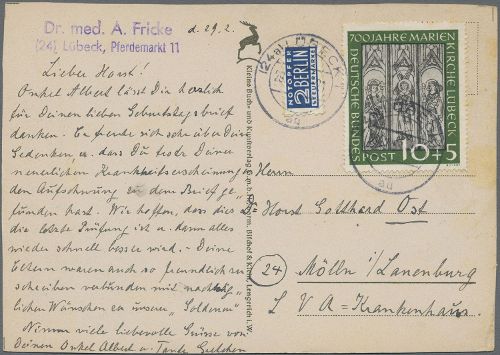 Dr. med. A. Fricke
(24) Lübeck, Pferdemarkt 11
d. 29.2.
Lieber Horst!
Onkel Albert lässt Dir herzlich
für Deinen lieben Geburtstagsbrief
danken. Er freute sich sehr über Dein
Gedenken u. dass Du trotz Deiner
neuerlichen Krankheitserscheinung
den Aufschwung zu dem Brief ge-
funden hast. Wir hoffen, dass dies
die letzte Prüfung ist u. dann alles
wieder schnell besser wird. - Deine
Eltern waren auch so freundlich zu
schreiben verbunden mit
lichen Wünschen zu unserer
Nimm viele liebevolle Grüsse von
Deinem Onkel Albert u. Tante
Kleine Buch- und Kunstverlag G.m.b.H.
Bischof & Klein, Lengerich i. W.
(24a) LÜBECK
NOTOPFER
2 BERLIN
STEUERMARKE
700 JAHRE MARIENKIRCHE LÜBECK
DEUTSCHE BUNDESPOST 10+5
Herrn
Horst Gotthard Ost
(24) Mölln i/Lauenburg
L V A = Krankenhaus